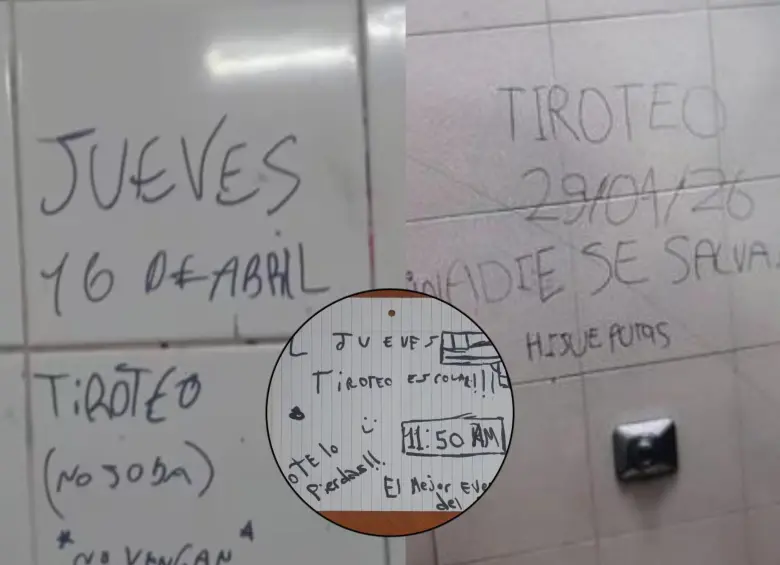 JUEVES
16 DE ABRIL
TiROTEO
(NO JODA)
* NO VENGAN *
TIROTEO
29/04/26
NADIE SE SALVA
HIJUEPUTAS
JUEVES
TIROTEO ESCOLAR!!!
11:50 AM
OTE lo
Pierdas!!
El Mejor Eve
del